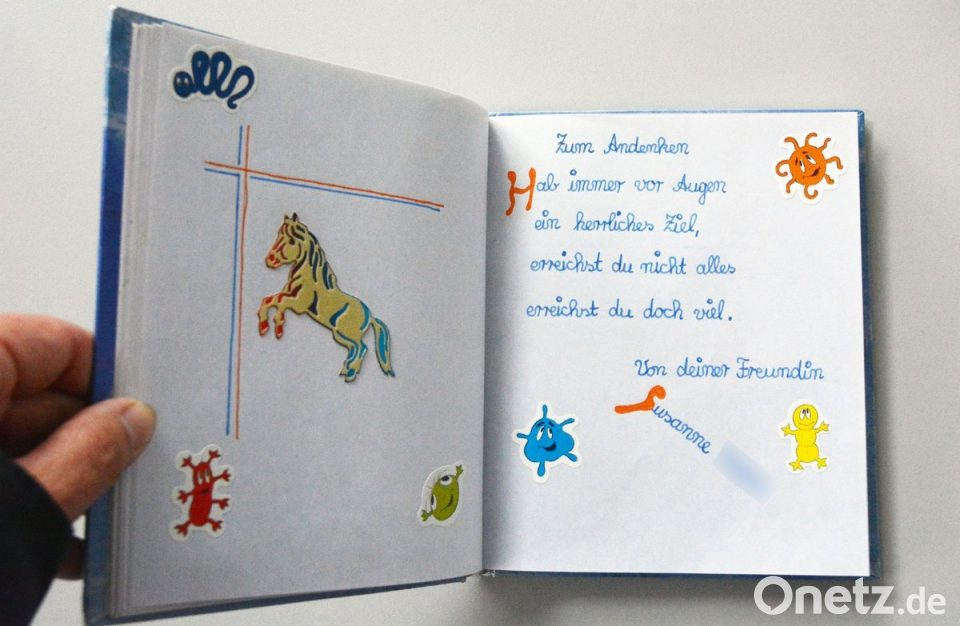 Zum Andenken
Hab immer vor Augen
ein herrliches Ziel,
erreichst du nicht alles
erreichst du doch viel.
Von deiner Freundin
Susanne
Onetz.de